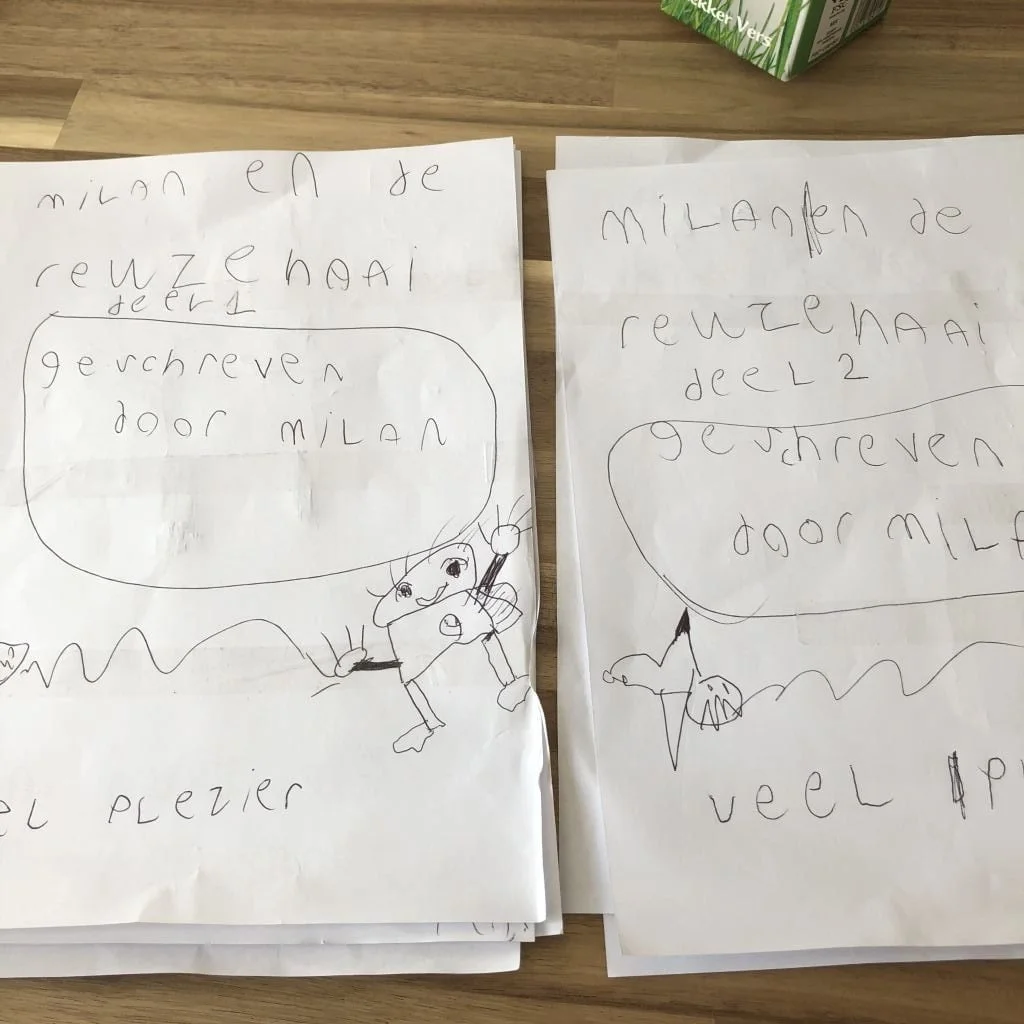 ekker Vers
milan en de
reuzehaai
deel 1
geschreven
door milan
el plezier
milan en de
reuzehaai
deel 2
geschreven
door mila
veel